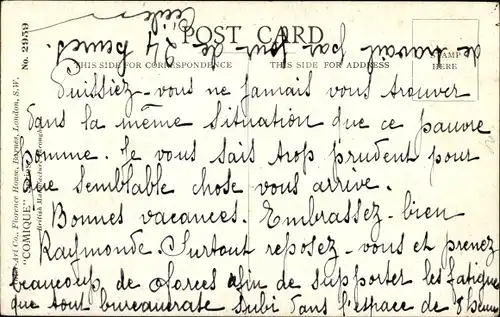 POST CARD
THIS SIDE FOR CORRESPONDENCE
THIS SIDE FOR ADDRESS
STAMP
HERE
Puissiez-vous ne jamais vous trouver
dans la même situation que ce pauvre
homme. Je vous sais trop prudent pour
que semblable chose vous arrive.
Bonnes vacances. Embrassez-bien
Raymonde. Surtout reposez-vous et prenez
beaucoup de forces afin de supporter les fatigues
que tout bureaucrate subi dans l'espace de 8 heures
de travail par jour de 24 heures.
Cécile
No. 2959
"COMIQUE"
Art Co., Florence House, Barnes, London, S.W.
British Manufacture throughout